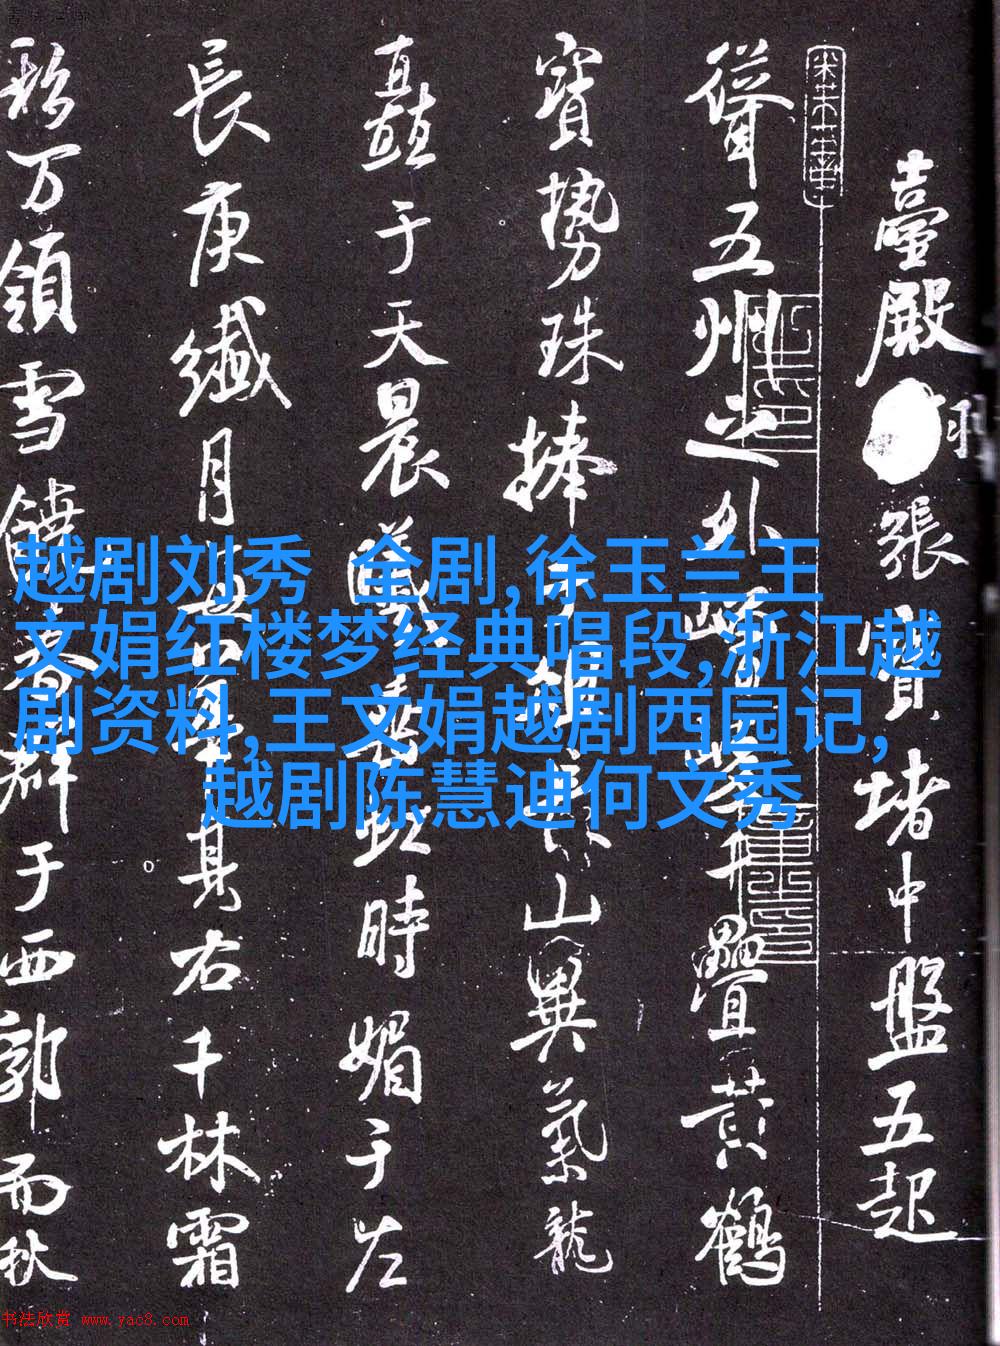 越剧刘秀 全剧,徐玉兰王
文娟红楼梦经典唱段,浙江越
剧资料,王文娟越剧西园记,
越剧陈慧迪何文秀
臺殿張寶堵中盤五起
聳五州之外疊黃鶴
寶勢珠捧山異氣龍
矗于天晨曦虹時媚于左
長庚纖月見右千林霜
万領雪饒群于西郭而秋
书法欣赏 www.yac8.com